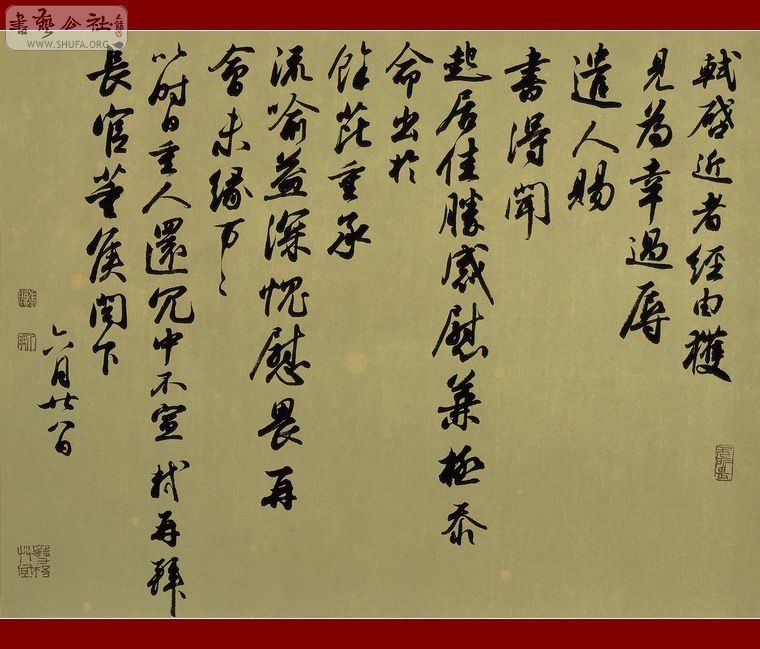 書藝公社
WWW.SHUFA.ORG
軾啓近者經由獲
見為幸過辱
遣人賜
書得聞
起居佳勝感慰兼極忝
命出於
餘芘重承
流喻益深愧慰畏再
會未緣万〻
以時自重人還冗中不宣軾再拜
長官董侯閤下
六月廿八日